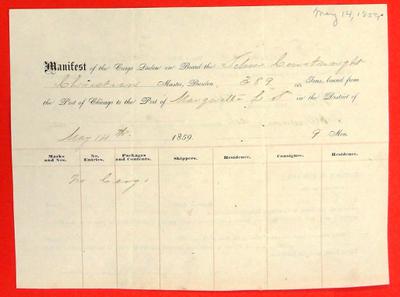 May 14, 1859
Manifest of the Cargo Laden on Board the John
Christian Master, Burden 389 Tons, bound from
the Port of Chicago to the Port of in the District of
May 14th 1859. 9 Men.
Marks and Nos. No. Entries. Packages and Contents. Shippers. Residence. Consignee. Residence.
No Cargo